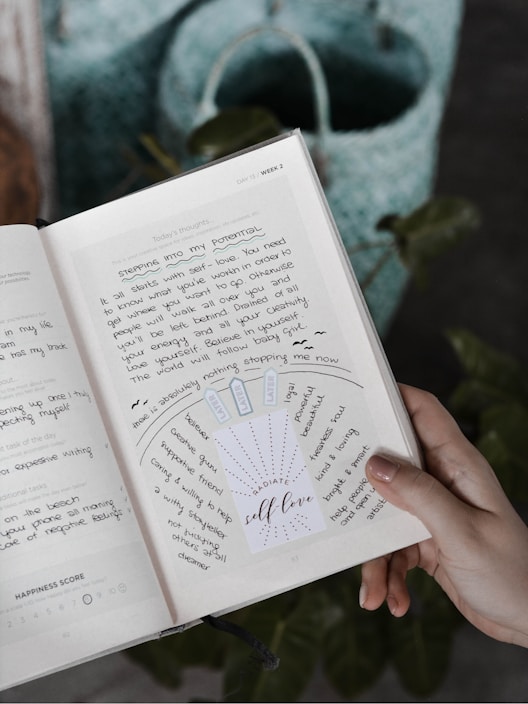 in my life
am
e has my back
pecting myself
task of the day
for expensive writing
on the beach
your phone all morning
HAPPINESS SCORE
2 3 4 5 6 7 8 9 10
DAY 13 / WEEK 2
Today's thoughts...
STEPPING INTO MY POTENTIAL
It all starts with self-love. You need
to know what you're worth in order to
get where you want to go. Otherwise
people will walk all over you and
you'll be left behind. Drained of all
your energy and all your creativity
Love yourself. Believe in yourself.
The world will follow baby girl.
there is absolutely nothing stopping me now
LATER
LATER
LATER
believer
creative guru
supportive friend
caring & willing to help
a witty storyteller
not bitching
others at all
dreamer
RADIATE
self-love
loyal
powerful
beautiful
fearless soul
kind & loving
bright & smart
help people
and open
artist